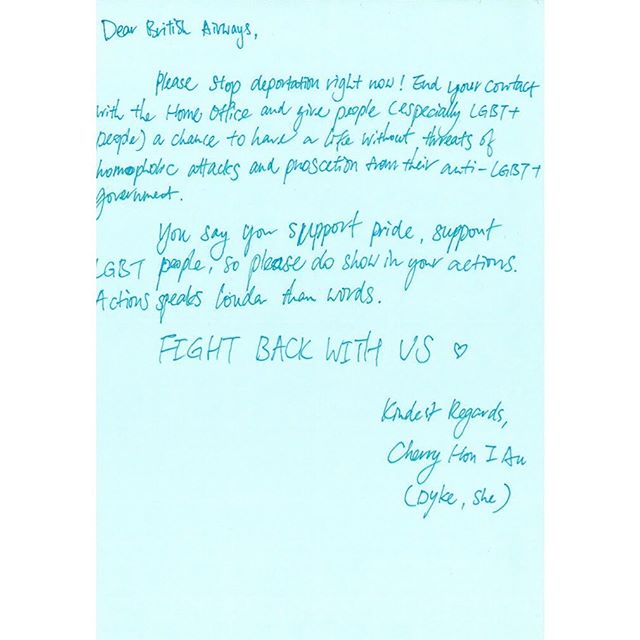 Dear British Airways,
Please stop deportation right now! End your contact
with the Home Office and give people (especially LGBT+
people) a chance to have a life without threats of
homophobic attacks and proscetion from their anti-LGBT+
government.
You say you support pride, support
LGBT people, so please do show in your actions.
Actions speaks louder than words.
FIGHT BACK WITH US ♡
Kindest Regards,
Cherry Hon I Au
(Dyke, she)